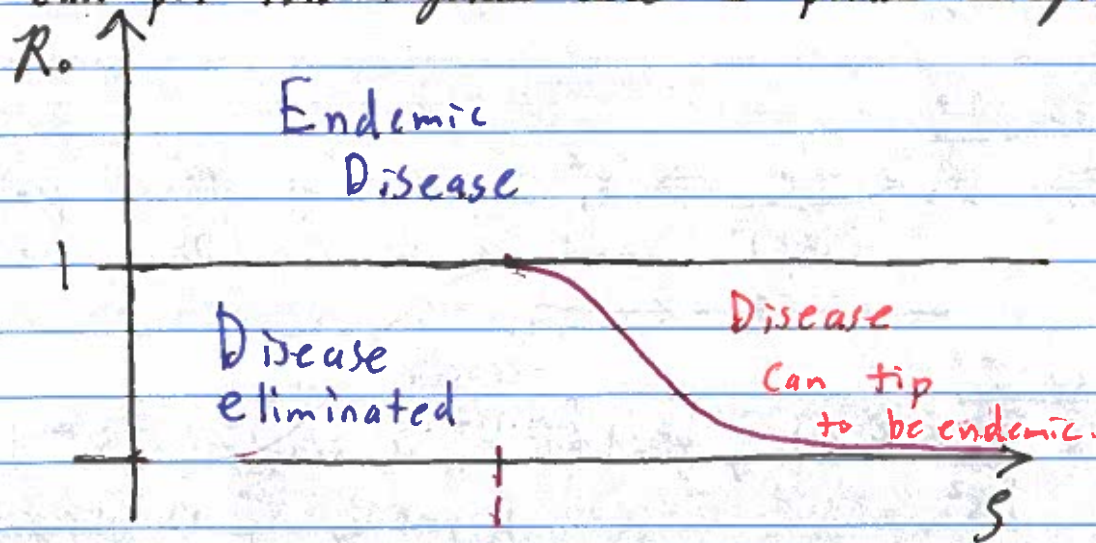 R₀
Endemic
Disease
1
Disease
eliminated
Disease
can tip
to be endemic.